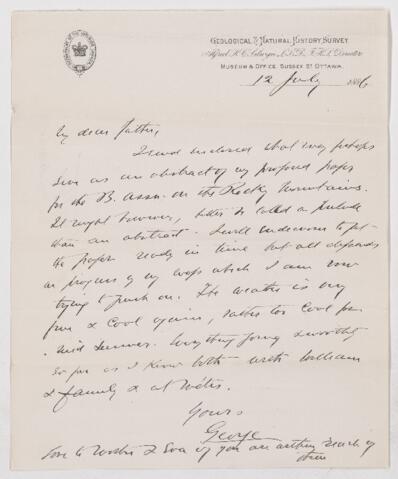 GEOLOGICAL & NATURAL HISTORY SURVEY
Alfred R. C. Selwyn, L.L.D., F.R.S., Director
MUSEUM & OFFICE, SUSSEX ST. OTTAWA.
12 July 1886
My dear Father,
I send enclosed what may perhaps
serve as an abstract of my proposed paper
for the B. Assn. on the Rocky Mountains.
It might however, better be called a prelude
than an abstract. I will endeavour to get
the paper ready in time but all depends
on progress of my maps which I am now
trying to push on. The weather is very
fine & cool again, rather too cool for
Mid Summer. Everything going smoothly
so far as I know both with William
& family & at Métis.
Yours
George
Love to Mother & Eva if you are within reach of
them